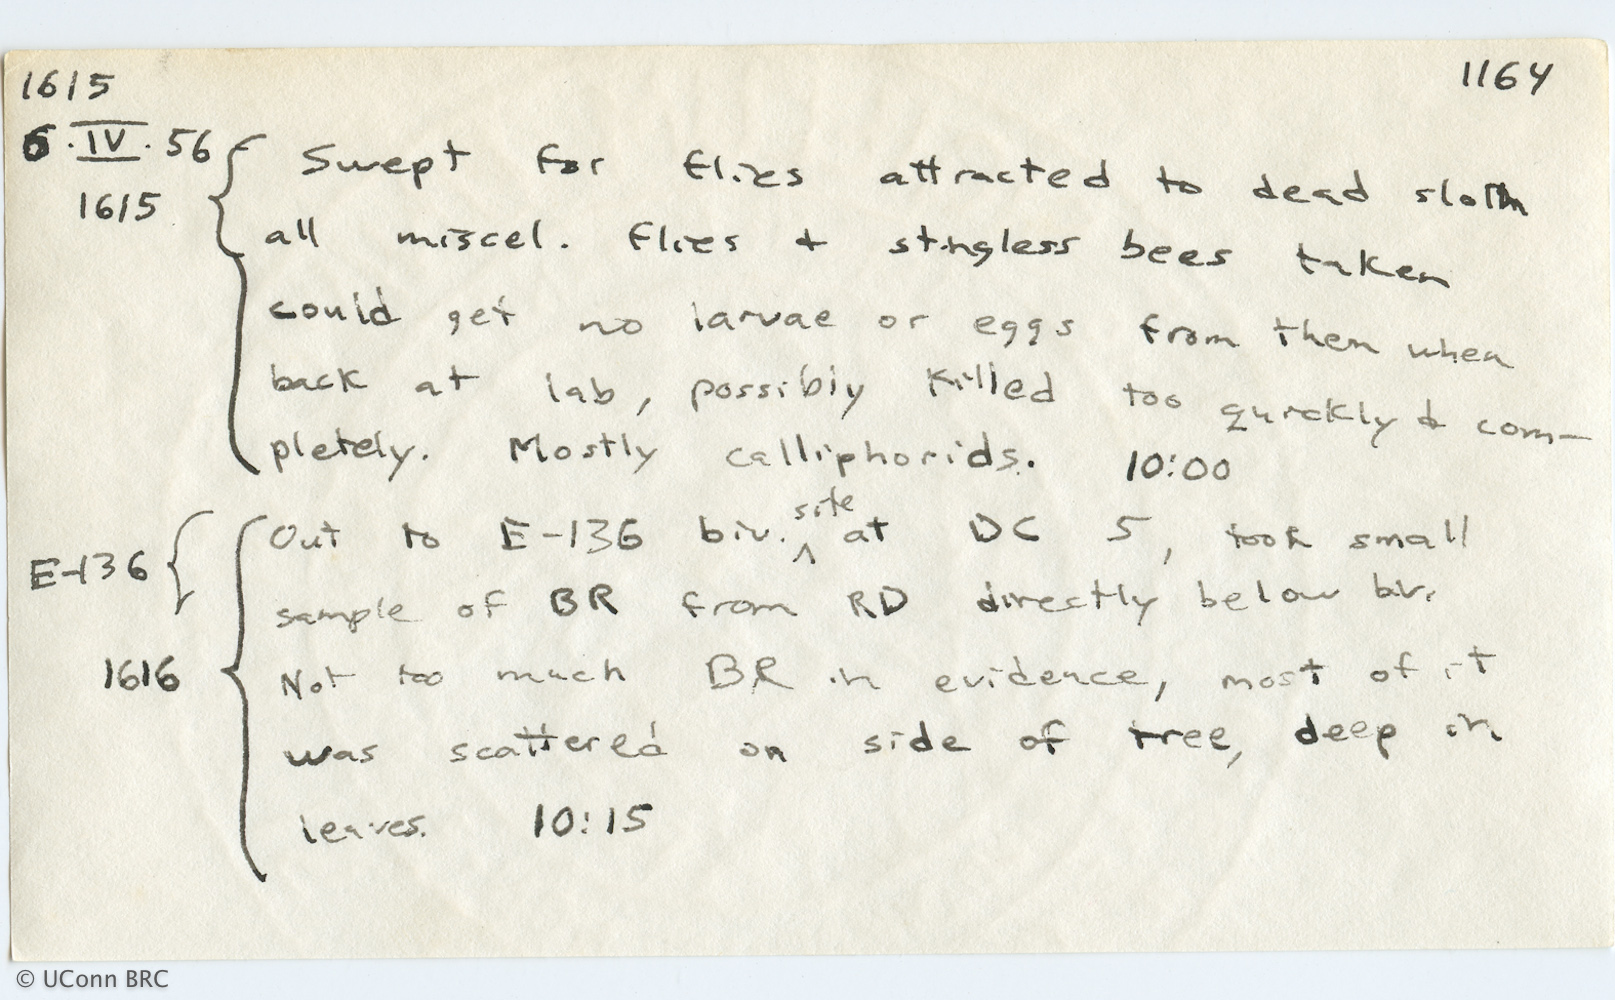 1615
1164
6.IV.56
1615
Swept for flies attracted to dead sloth
all miscel. flies + stingless bees taken
could get no larvae or eggs from them when
back at lab, possibly killed too quickly & com-
pletely. Mostly calliphorids. 10:00
E-136
1616
Out to E-136 biv. site at DC 5, took small
sample of BR from RD directly below biv.
Not too much BR in evidence, most of it
was scattered on side of tree, deep in
leaves. 10:15
© UConn BRC